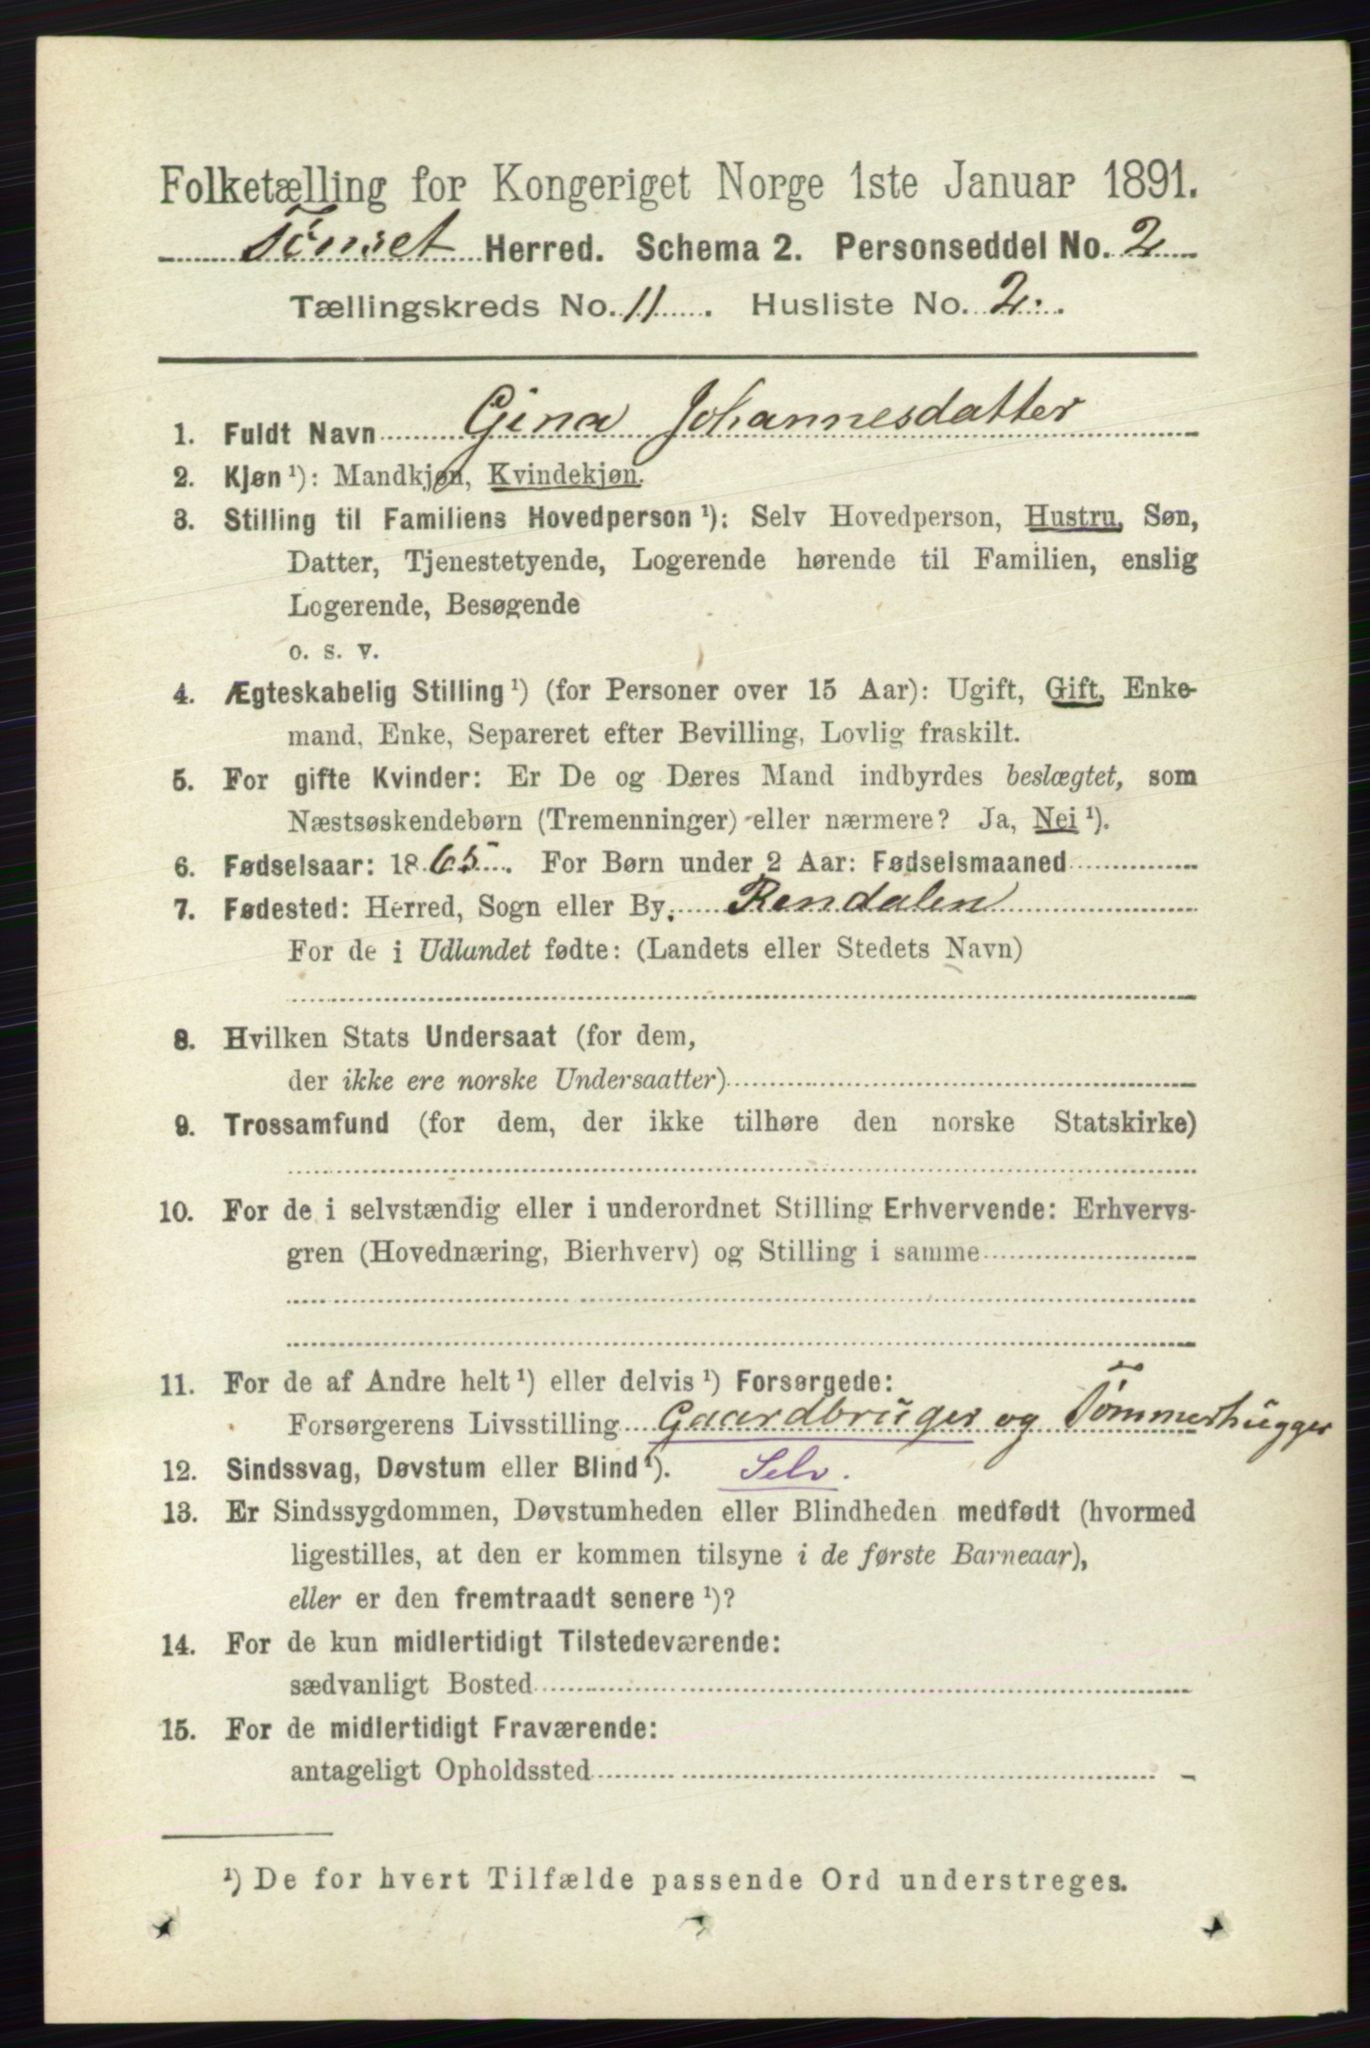 Folketælling for Kongeriget Norge 1ste Januar 1891.
Tönset Herred. Schema 2. Personseddel No. 2
Tællingskreds No. 11. Husliste No. 2.
1. Fuldt Navn Gina Johannesdatter
2. Kjøn¹): Mandkjøn, Kvindekjøn.
3. Stilling til Familiens Hovedperson¹): Selv Hovedperson, Hustru, Søn,
Datter, Tjenestetyende, Logerende hørende til Familien, enslig
Logerende, Besøgende
o. s. v.
4. Ægteskabelig Stilling¹) (for Personer over 15 Aar): Ugift, Gift, Enke-
mand, Enke, Separeret efter Bevilling, Lovlig fraskilt.
5. For gifte Kvinder: Er De og Deres Mand indbyrdes beslægtet, som
Næstsøskendebørn (Tremenninger) eller nærmere? Ja, Nei¹).
6. Fødselsaar: 1865. For Børn under 2 Aar: Fødselsmaaned
7. Fødested: Herred, Sogn eller By, Rendalen
For de i Udlandet fødte: (Landets eller Stedets Navn)
8. Hvilken Stats Undersaat (for dem,
der ikke ere norske Undersaatter)
9. Trossamfund (for dem, der ikke tilhøre den norske Statskirke)
10. For de i selvstændig eller i underordnet Stilling Erhvervende: Erhvervs-
gren (Hovednæring, Bierhverv) og Stilling i samme
11. For de af Andre helt¹) eller delvis¹) Forsørgede:
Forsørgerens Livsstilling Gaardbruger og Tömmerhugger
12. Sindssvag, Døvstum eller Blind¹). Selv.
13. Er Sindssygdommen, Døvstumheden eller Blindheden medfødt (hvormed
ligestilles, at den er kommen tilsyne i de første Barneaar),
eller er den fremtraadt senere¹)?
14. For de kun midlertidigt Tilstedeværende:
sædvanligt Bosted
15. For de midlertidigt Fraværende:
antageligt Opholdssted
¹) De for hvert Tilfælde passende Ord understreges.